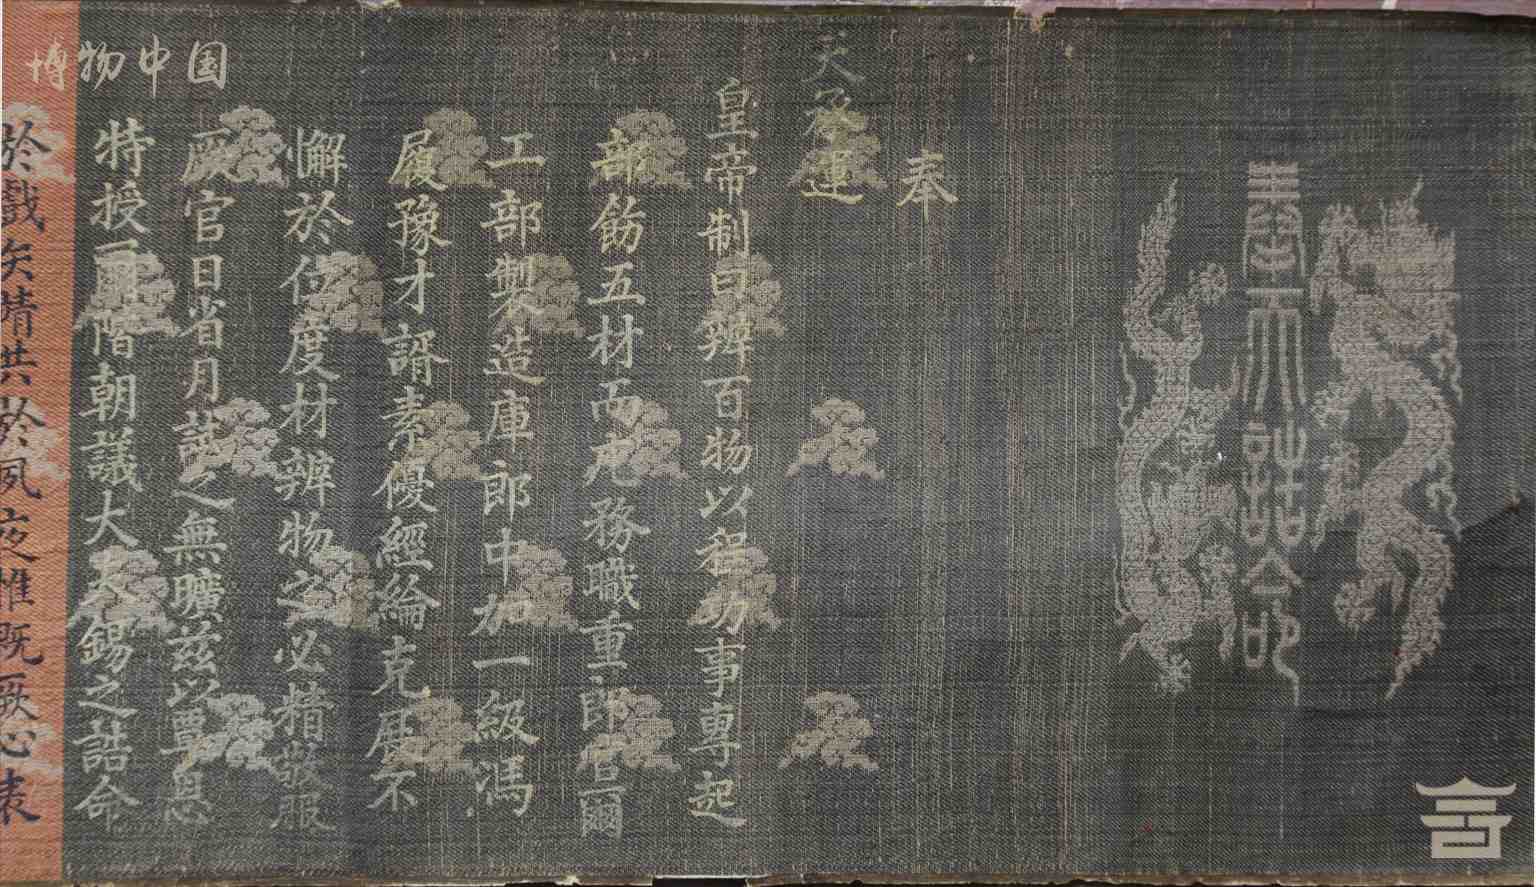 奉天誥命
奉
天承運
皇帝制曰辨百物以程功事專起
部飭五材而庀務職重郎官爾
工部製造庫郎中加一級馮
履豫才諝素優經綸克展不
懈於位度材辨物之必精敬服
厥官日省月試之無曠茲以覃恩
特授爾階朝議大夫錫之誥命
於戲矢靖共於夙夜惟既厥心表
博物中国